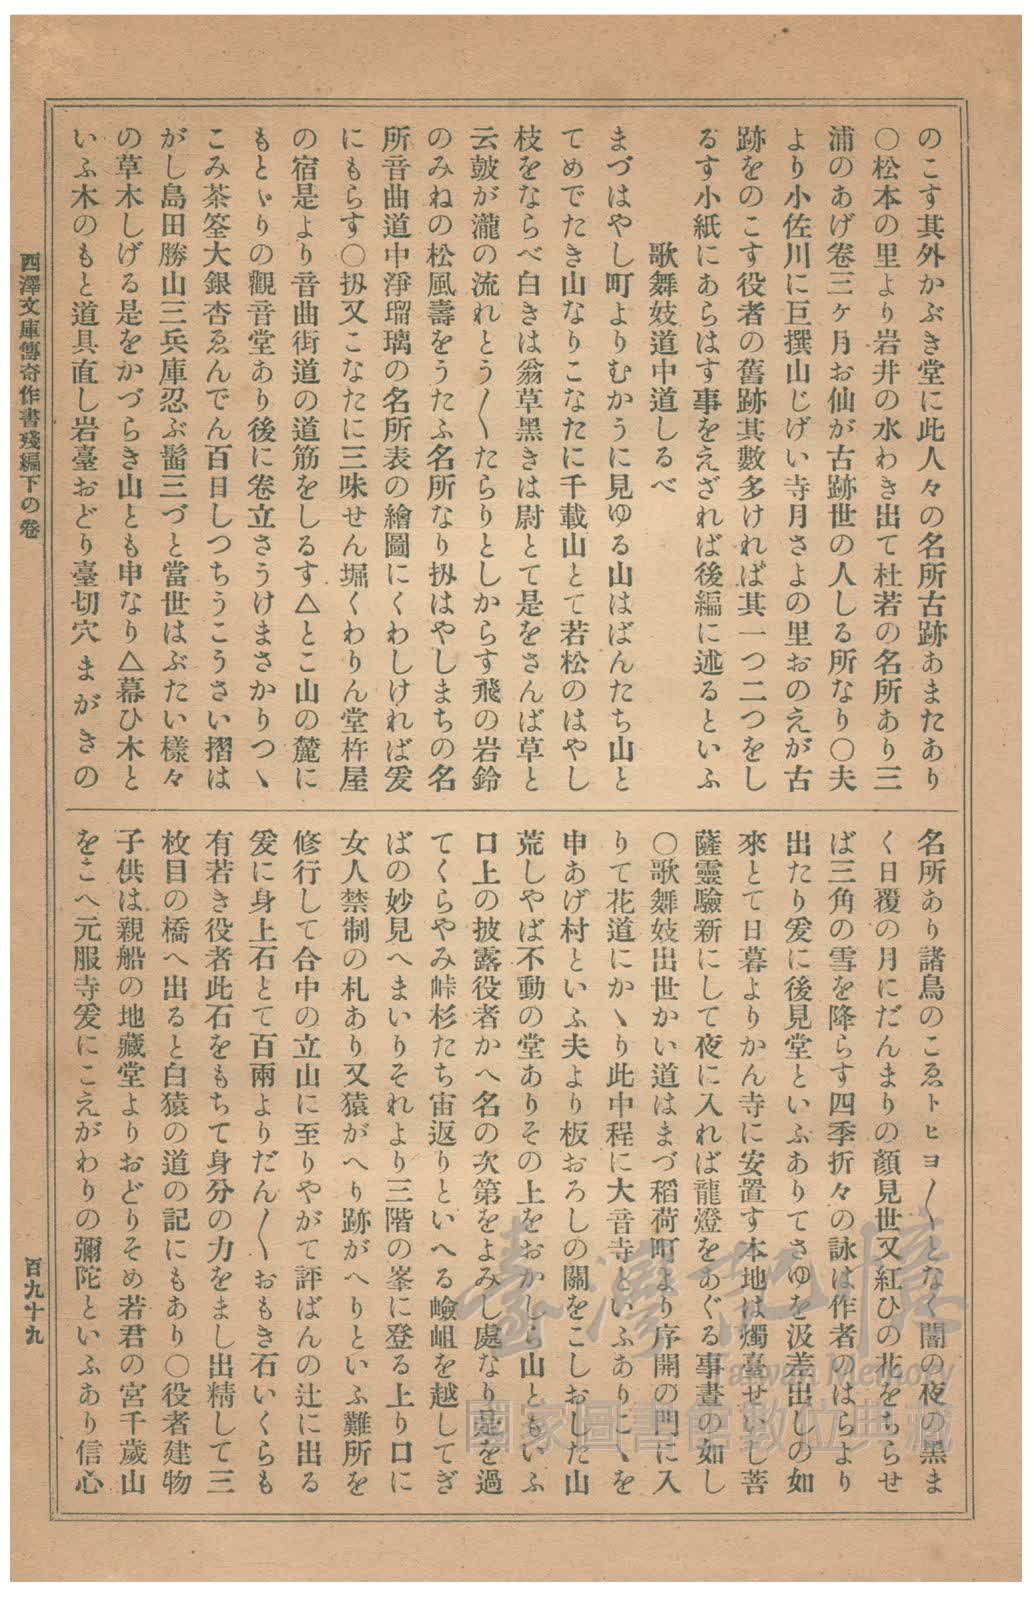 のこす其外かぶき堂に此人々の名所古跡あまたあり
〇松本の里より岩井の水わき出て杜若の名所あり三
浦のあげ卷三ヶ月お仙が古跡世の人しる所なり〇夫
より小佐川に巨撰山じげい寺月さよの里おのえが古
跡をのこす役者の舊跡其數多ければ其一つ二つをし
るす小紙にあらはす事をえざれば後編に述るといふ
歌舞妓道中道しるべ
まづはやし町よりむかうに見ゆる山はばんたち山と
てめでたき山なりこなたに千載山とて若松のはやし
枝をならべ白きは翁草黑きは尉とて是をさんば草と
云皷が瀧の流れとう〱たらりとしからす飛の岩鈴
のみねの松風壽をうたふ名所なり扨はやしまちの名
所音曲道中淨瑠璃の名所表の繪圖にくわしければ爰
にもらす〇扨又こなたに三味せん堀くわりん堂杵屋
の宿是より音曲街道の道筋をしるす△とこ山の麓に
もとゞりの觀音堂あり後に卷立さうけまさかりつゝ
こみ茶筌大銀杏ゑんでん百日しつちうこうさい摺は
がし島田勝山三兵庫忍ぶ髷三づと當世はぶたい樣々
の草木しげる是をかづらき山とも申なり△幕ひ木と
いふ木のもと道具直し岩臺おどり臺切穴まがきの
名所あり諸鳥のこゑトヒヨ〱となく闇の夜の黑ま
く日覆の月にだんまりの顏見世又紅ひの花をちらせ
ば三角の雪を降らす四季折々の詠は作者のはらより
出たり爰に後見堂といふありてさゆを汲差出しの如
來とて日暮よりかん寺に安置す本地は燭臺せいし菩
薩靈驗新にして夜に入れば龍燈をあぐる事晝の如し
〇歌舞妓出世かい道はまづ稻荷町より序開の門に入
りて花道にかゝり此中程に大音寺といふありにゝを
申あげ村といふ夫より板おろしの關をこしおした山
荒しやば不動の堂ありその上をおかしら山ともいふ
口上の披露役者かへ名の次第をよみし處なり是を過
てくらやみ峠杉たち宙返りといへる嶮岨を越してぎ
ばの妙見へまいりそれより三階の峯に登る上り口に
女人禁制の札あり又猿がへり跡がへりといふ難所を
修行して合中の立山に至りやがて評ばんの辻に出る
爰に身上石とて百兩よりだん〱おもき石いくらも
有若き役者此石をもちて身分の力をまし出精して三
枚目の橋へ出ると白猿の道の記にもあり〇役者建物
子供は親船の地藏堂よりおどりそめ若君の宮千歲山
をこへ元服寺爰にこえがわりの彌陀といふあり信心
西澤文庫傳奇作書殘編下の卷
百九十九
臺灣記憶
Taiwan Memory
國家圖書館數位典藏